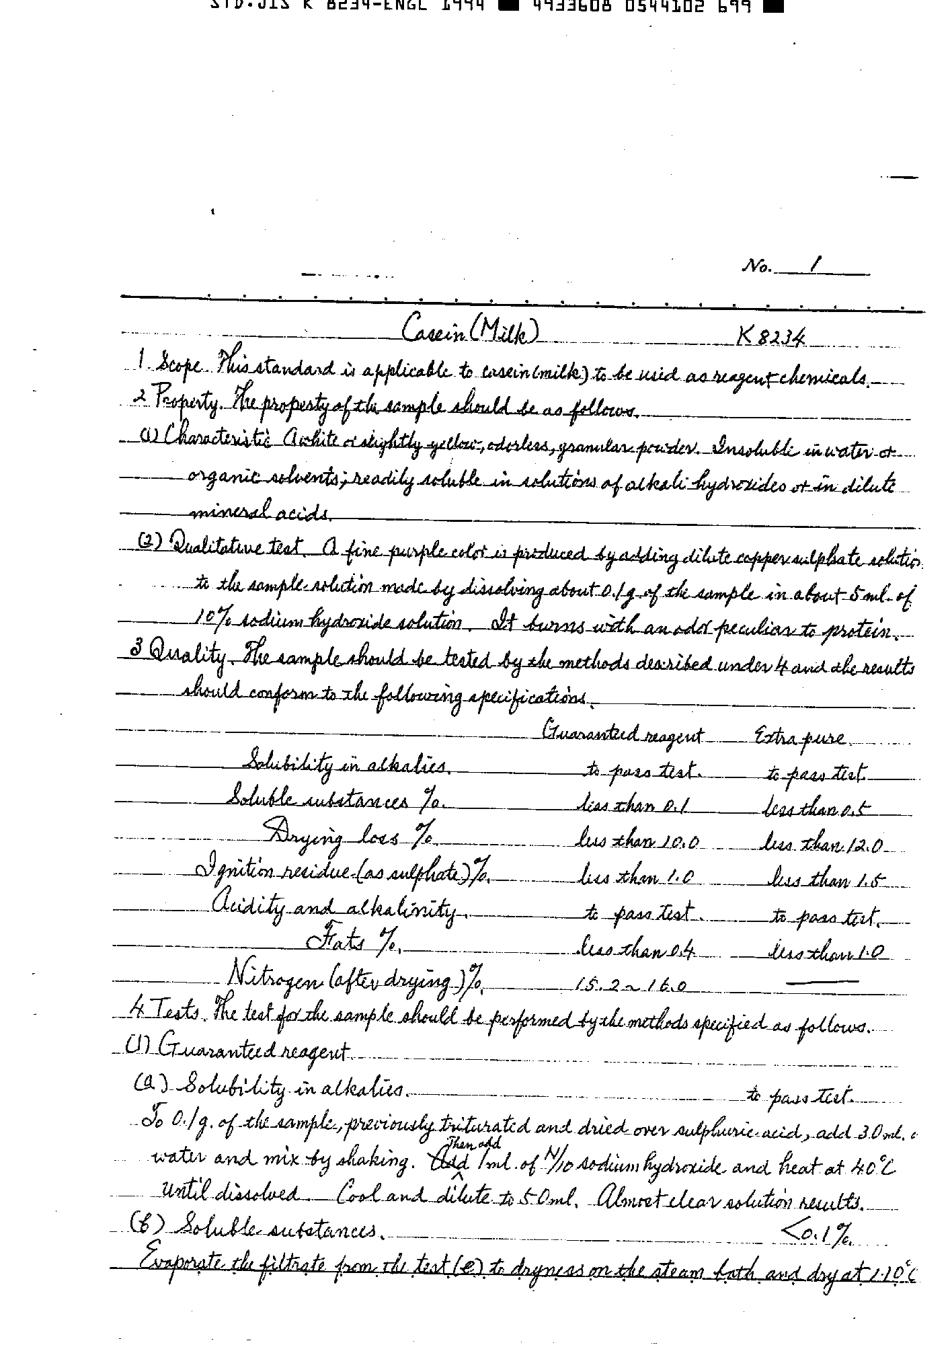 STD.JIS K 8234-ENGL 1994 ■ 4933608 0544102 699 ■
No. 1
Casein (Milk) K 8234
1. Scope. This standard is applicable to casein (milk) to be used as reagent chemicals.
2 Property. The property of the sample should be as follows.
(1) Characteristic A white or slightly yellow, odorless, granular powder. Insoluble in water or
organic solvents; readily soluble in solutions of alkali hydroxides or in dilute
mineral acids.
(2) Qualitative test. A fine purple color is produced by adding dilute copper sulphate solution
to the sample solution made by dissolving about 0.1g. of the sample in about 5 ml. of
10% sodium hydroxide solution. It burns with an odor peculiar to protein.
3 Quality. The sample should be tested by the methods described under 4 and the results
should conform to the following specifications.
Guaranteed reagent Extra pure
Solubility in alkalies. to pass test. to pass test.
Soluble substances %. less than 0.1 less than 0.5
Drying loss % less than 10.0 less than 12.0
Ignition residue (as sulphate) %. less than 1.0 less than 1.5
Acidity and alkalinity. to pass test. to pass test.
Fats %. less than 0.4 less than 1.0
Nitrogen (after drying) %. 15.2 ~ 16.0 ——
4 Tests. The test for the sample should be performed by the methods specified as follows.
(1) Guaranteed reagent
(a) Solubility in alkalies. to pass test.
To 0.1g. of the sample, previously triturated and dried over sulphuric acid, add 30 ml. o
water and mix by shaking. Then add 1 ml. of N/10 sodium hydroxide and heat at 40°C
until dissolved. Cool and dilute to 50 ml. Almost clear solution results.
(b) Soluble substances. <0.1%.
Evaporate the filtrate from the test (e) to dryness on the steam bath and dry at 110°C